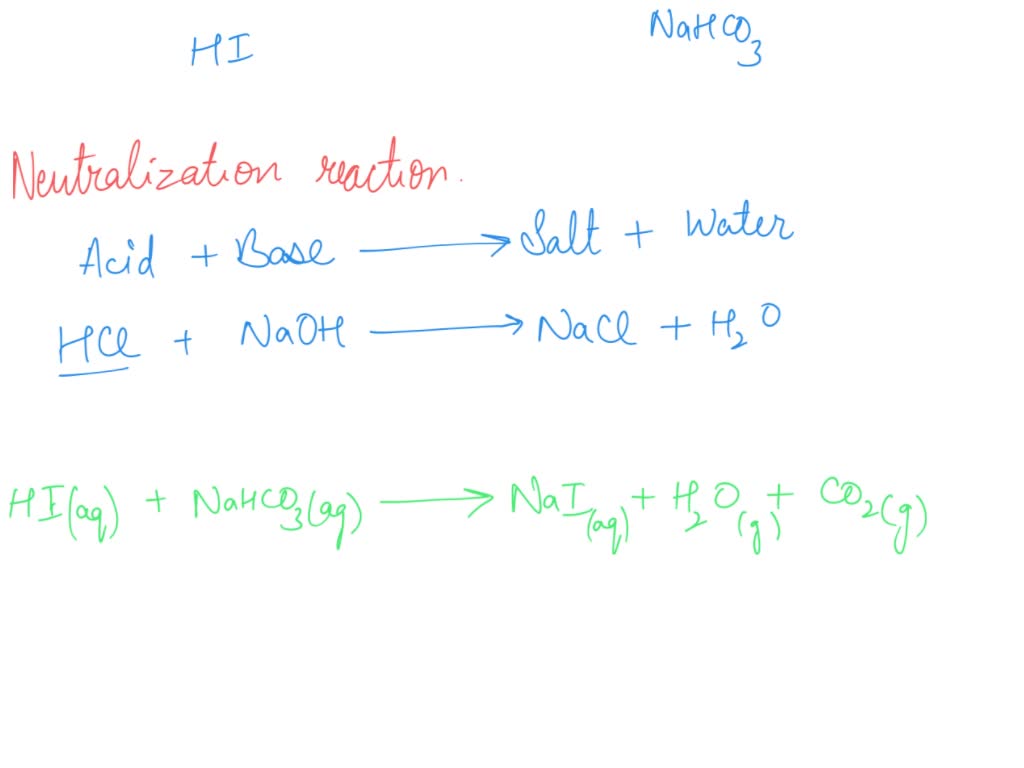 HI NaHCO₃
Neutralization reaction.
Acid + Base ⟶ Salt + Water
HCl + NaOH ⟶ NaCl + H₂O
HI(aq) + NaHCO₃(aq) ⟶ NaI(aq) + H₂O(g) + CO₂(g)